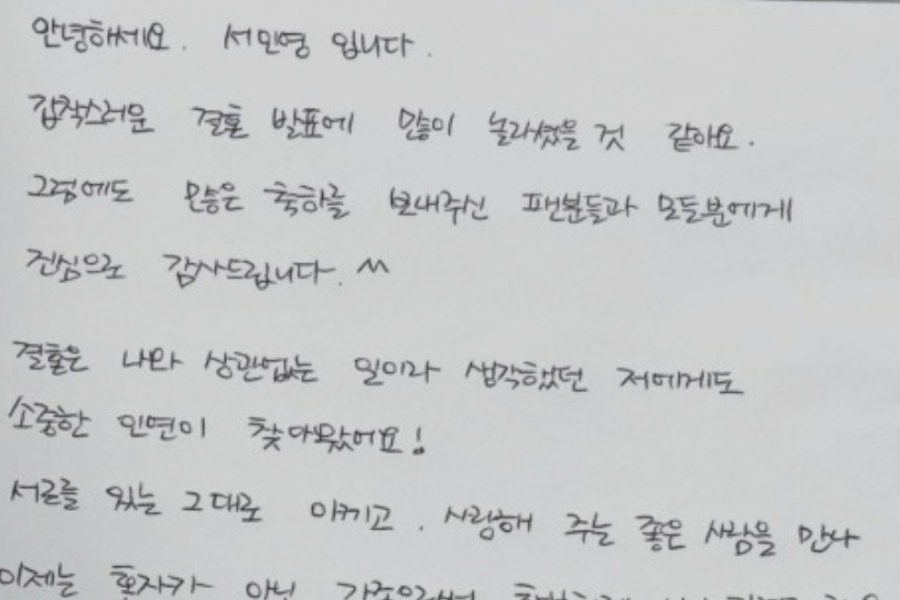 안녕하세요. 서민영 입니다.
갑작스러운 결혼 발표에 많이 놀라셨을 것 같아요.
그럼에도 모슬은 축하를 보내주신 팬분들과 모든분에게
진심으로 감사드립니다. ^^
결혼은 나와 상관없는 일이라 생각했던 저에게도
소중한 인연이 찾아왔어요!
서로를 있는 그대로 아끼고. 사랑해 주는 좋은 사람을 만나
이제는 혼자가 아닌 가족으로서